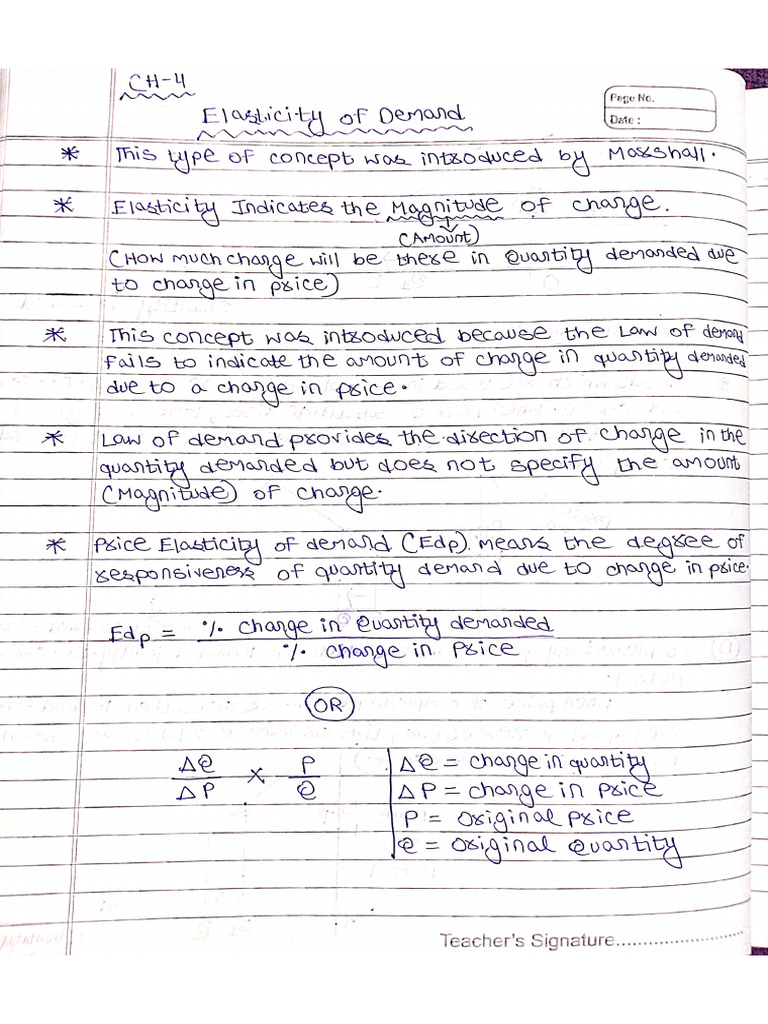 CH-4
Page No.
Elasticity of Demand
Date :
* This type of concept was introduced by Marshall.
* Elasticity Indicates the Magnitude of change.
(Amount)
(How much change will be there in Quantity demanded due
to change in price)
* This concept was introduced because the Law of demand
fails to indicate the amount of change in quantity demanded
due to a change in price.
* Law of demand provides the direction of change in the
quantity demanded but does not specify the amount
(Magnitude) of change.
* Price Elasticity of demand (Edp) means the degree of
responsiveness of quantity demand due to change in price.
Edp = % change in Quantity demanded
% change in Price
OR
ΔQ × P
ΔP Q
ΔQ = change in quantity
ΔP = change in price
P = original price
Q = original Quantity
Teacher's Signature..........................